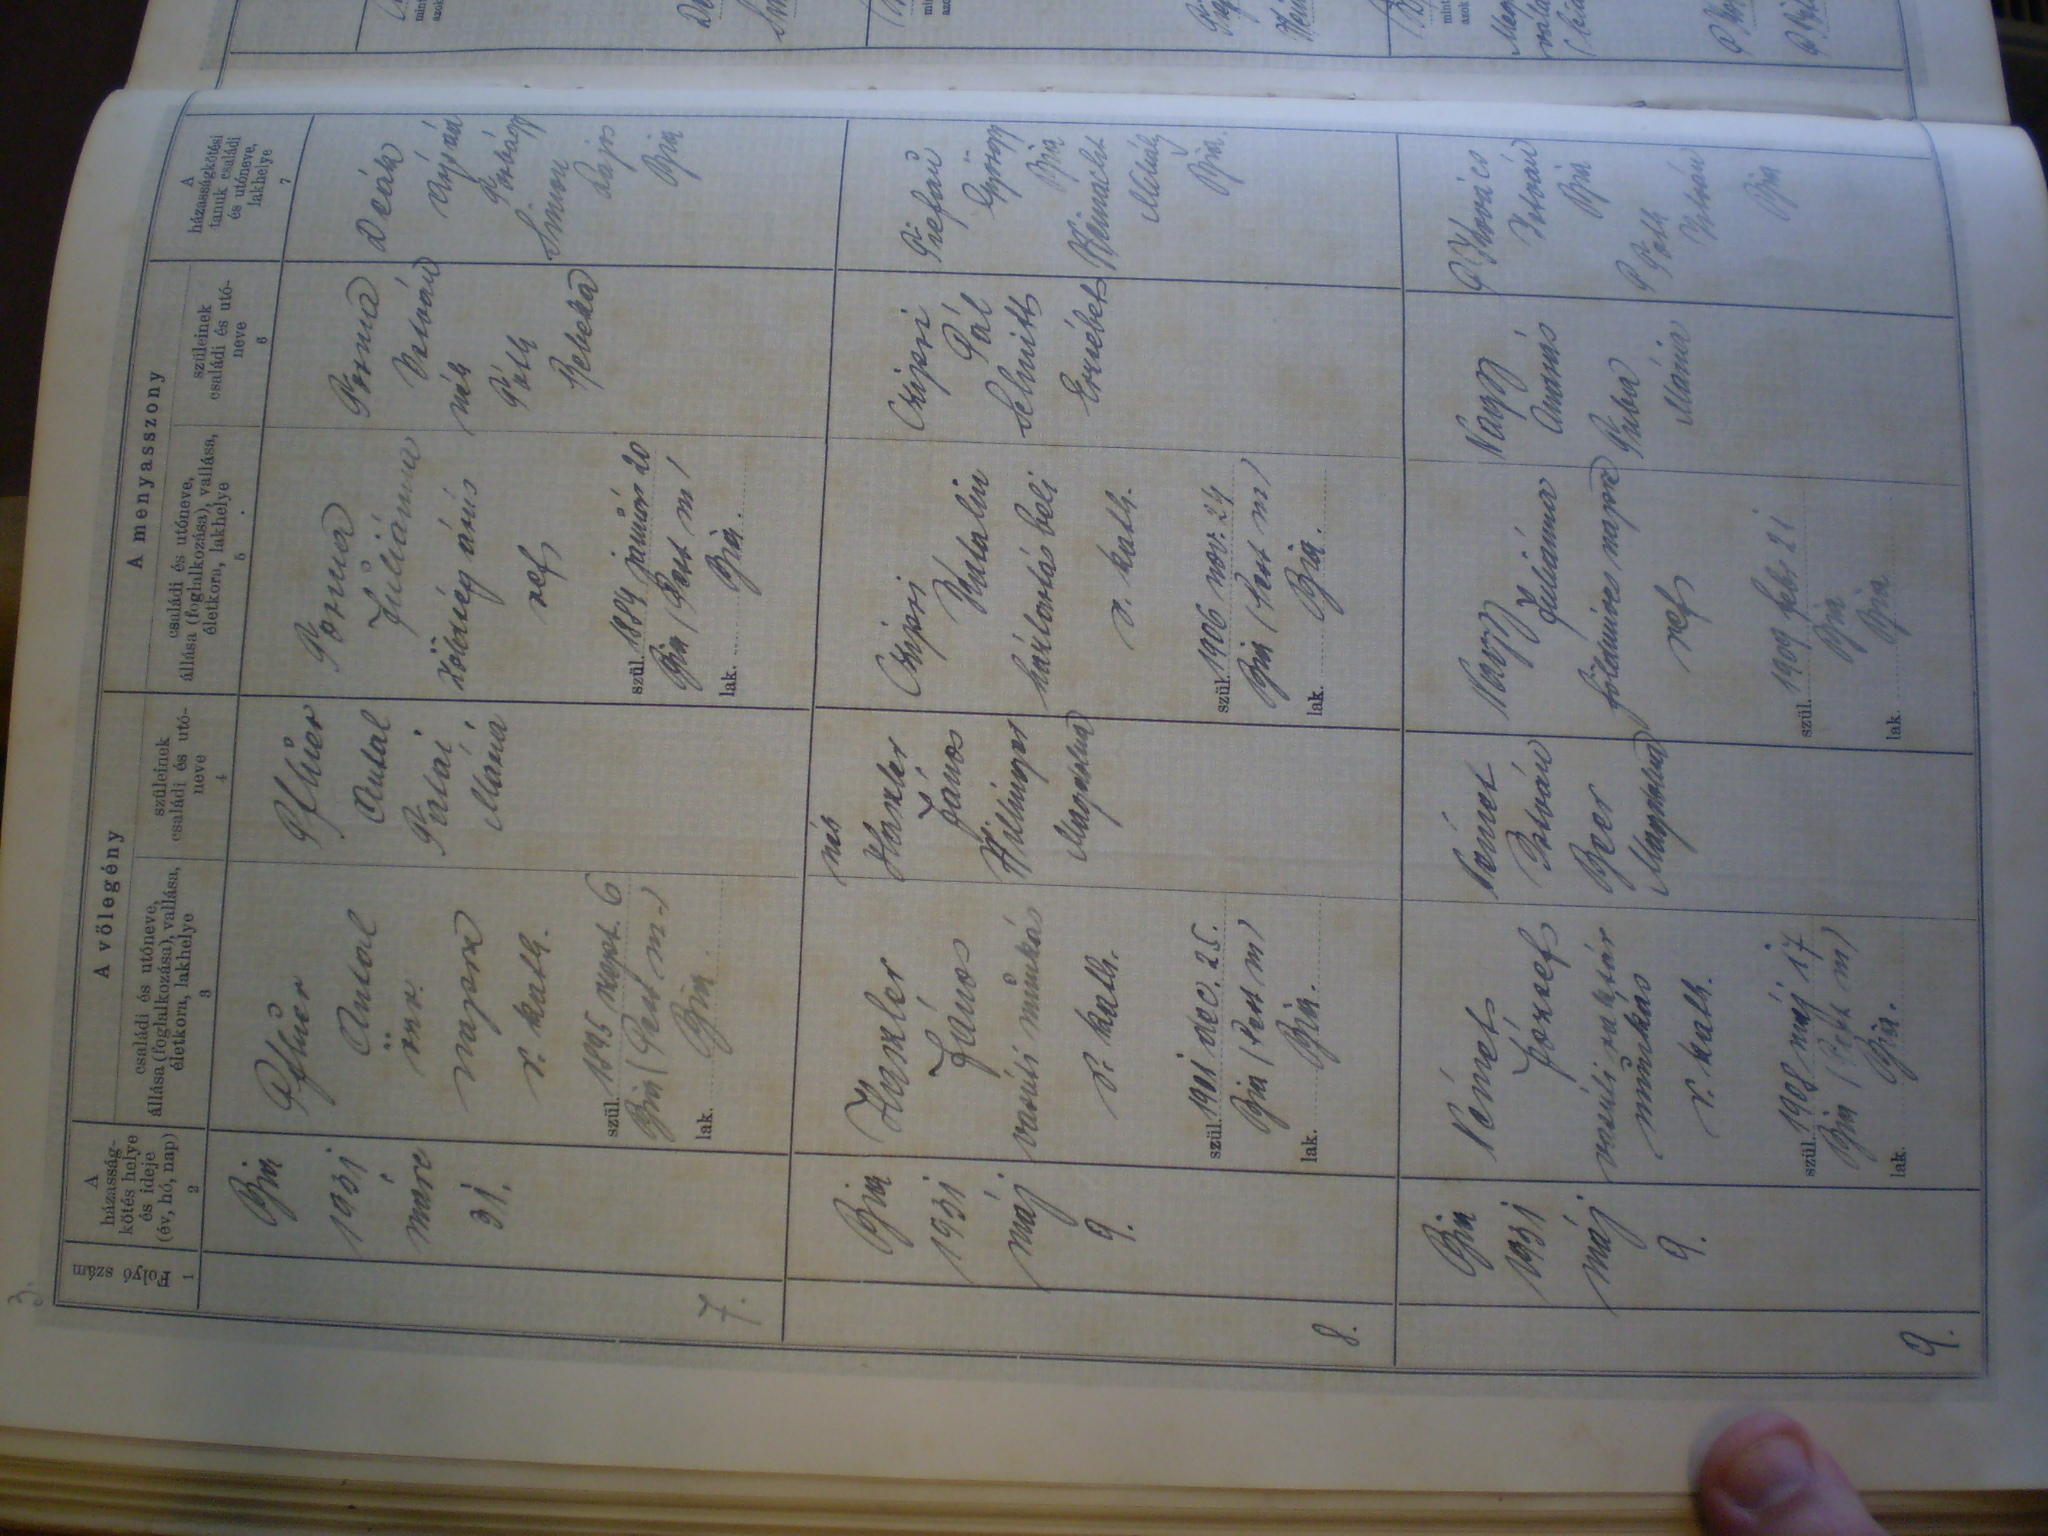 3.
Folyó szám
1
A
házasság-
kötés helye
és ideje
(év, hó, nap)
2
A vőlegény
családi és utóneve,
állása (foglalkozása), vallása,
életkora, lakhelye
3
szüleinek
családi és utó-
neve
4
A menyasszony
családi és utóneve,
állása (foglalkozása), vallása,
életkora, lakhelye
5
szüleinek
családi és utó-
neve
6
A
házasságkötési
tanuk családi
és utóneve,
lakhelye
7
7.
Bia
1931
márc
31.
Antal
r. kath.
szül. 1895 szept. 6
Bia (Pest m.)
lak. Bia.
Antal
Mária
Juliánna
zöldség árus
ref
szül. 1884 január 20
Bia (Pest m)
lak. Bia.
István
néh
Tóth
Rebeka
Deák
Árpád
Torbágy
Simon
Lajos
Bia
8.
Bia
1931
máj
9.
Haszler
János
vasúti munkás
r. kath.
szül. 1901 dec. 25.
Bia (Pest m)
lak. Bia.
néh
Haszler
János
Magdolna
Czipri
Katalin
háztartásbeli
r. kath.
szül. 1906 nov. 24
Bia (Pest m)
lak. Bia.
Czipri
Pál
Schmitt
Erzsébet
György
Bia
Weinacht
Mihály
Bia.
9.
Bia
1931
máj
9.
Német
József
vasúti raktár
munkás
r. kath.
szül. 1908 máj 17
Bia (Pest m)
lak. Bia.
Német
István
Beer
Magdolna
Nagy
Juliánna
földmíves napsz
ref
szül. 1909 febr 21
Bia
lak. Bia
Nagy
András
Mária
Kovács
István
Bia
Tóth
István
Bia